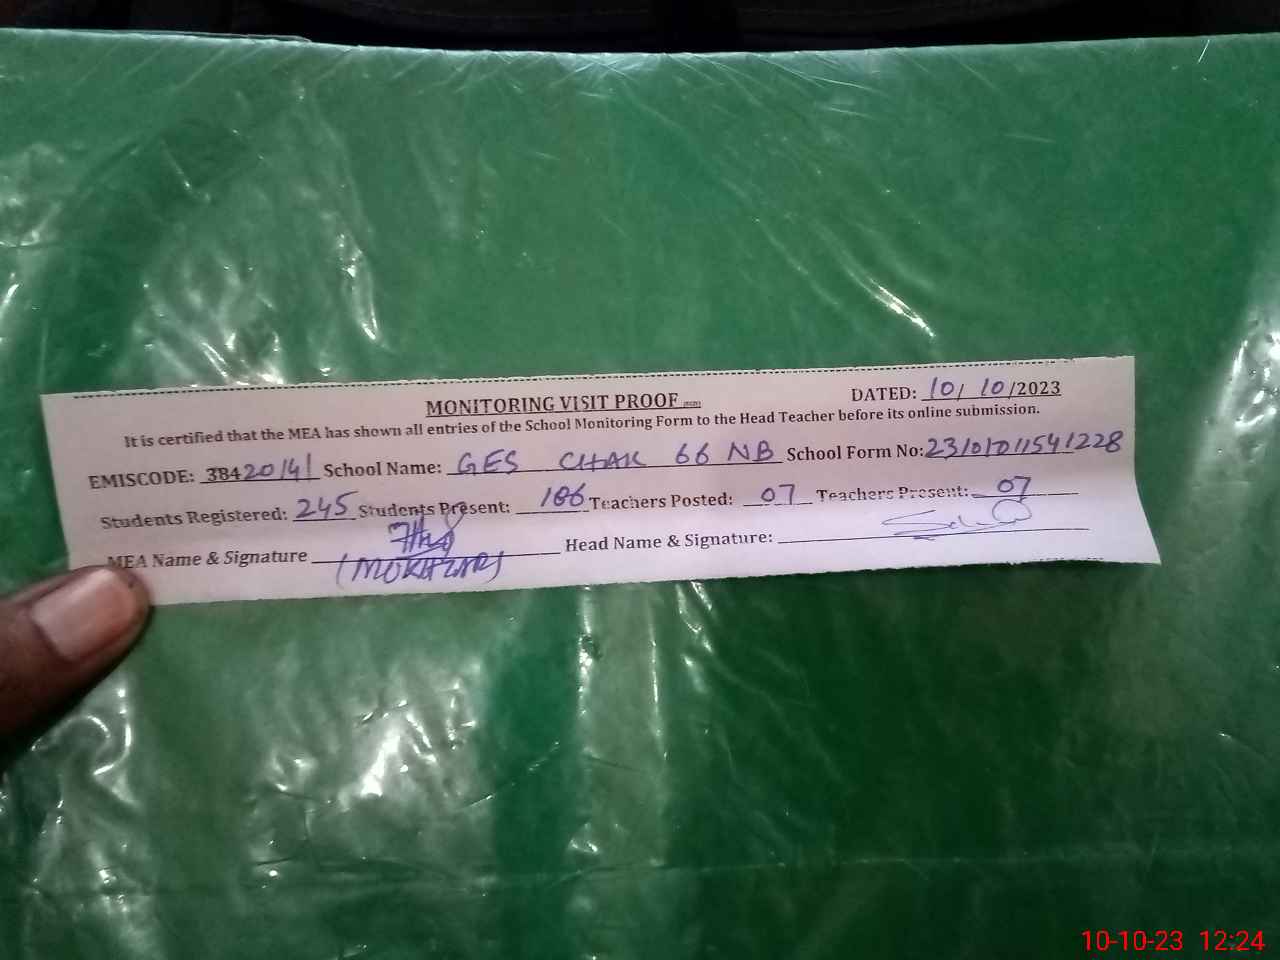 MONITORING VISIT PROOF
DATED: 10/10/2023
It is certified that the MEA has shown all entries of the School Monitoring Form to the Head Teacher before its online submission.
EMISCODE: 38420141 School Name: GES CHAK 66 NB School Form No:
Students Registered: 245 Students Present: 186 Teachers Posted: 07 Teachers Present: 07
MEA Name & Signature Head Name & Signature:
(MUKHTAR)
10-10-23 12:24